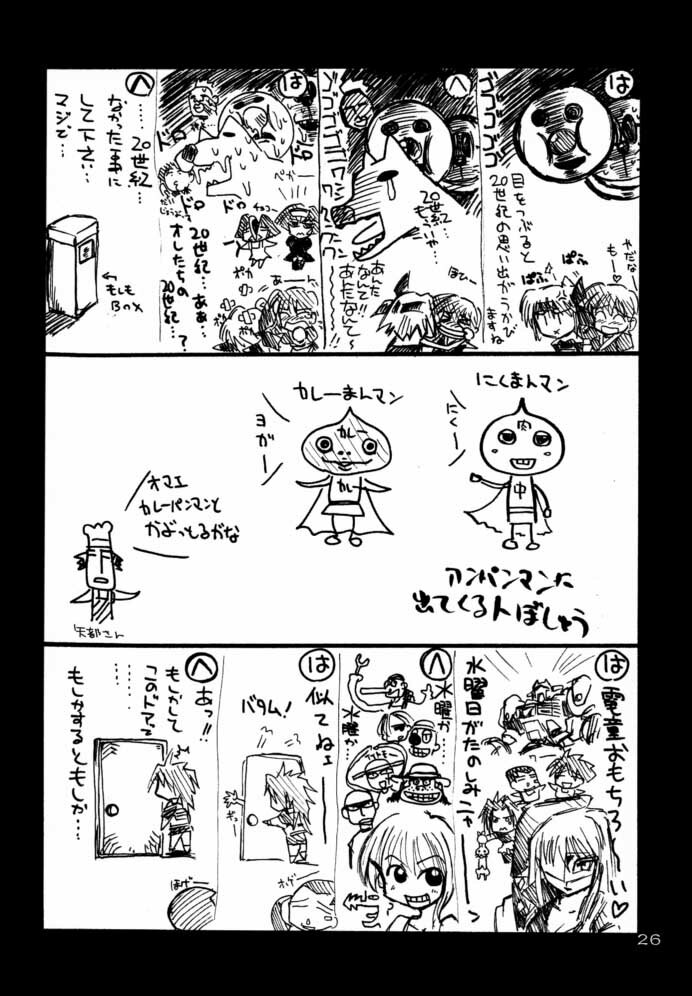 は
ゴゴゴゴ
目をつぶると
20世紀の思い出がうかび
ますね
やだな
もー♡
ぱふ
ぱふ
へ
ゴゴゴゴゴ
ワンワンワンワン
20世紀
もういや…
あんた
なんて!!
あんたなんて〜
ほひー
は
ドロ
ドロ
ドロ
ドロ
ぺかー
20世紀…ああ…
オレたちの
20世紀…?
ポカ
あーん
へ
……20世紀…
なかった事に
して下さい…
マジで…
←もしも
Box
にくまんマン
にくー
肉
中
カレーまんマン
ヨガー
カレー
カレー
オマエ
カレーパンマンと
かぶっとるがな
矢部さん
アンパンマンに
出てくる人ぼしゅう
は
電童おもちろーい♡
水曜日がたのしみニャー
へ
水曜か
水曜か
は
似てねェ
バタム!
ギュー
ホゲ
へ
あっ!!
もしかして
このドアって
……
もしかするともしか…
ほげー
26